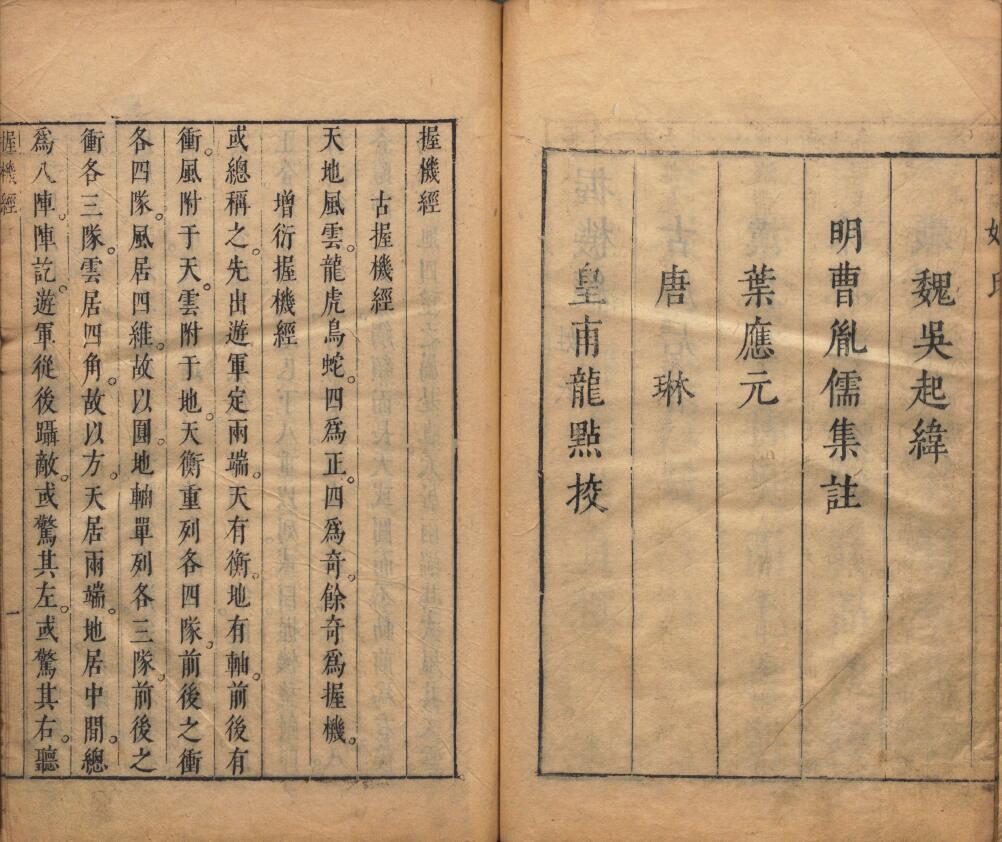 魏吳起緯
明曹胤儒集註
葉應元
唐琳
皇甫龍點挍
握機經
古握機經
天地風雲。龍虎鳥蛇。四爲正。四爲奇。餘奇爲握機。
增衍握機經
或總稱之。先出遊軍定兩端。天有衡。地有軸。前後有
衝。風附于天。雲附于地。天衡重列各四隊。前後之衝
各四隊。風居四維。故以圓。地軸單列各三隊。前後之
衝各三隊。雲居四角。故以方。天居兩端。地居中間。總
爲八陣。陣訖。遊軍從後躡敵。或驚其左。或驚其右。聽
握機經
一